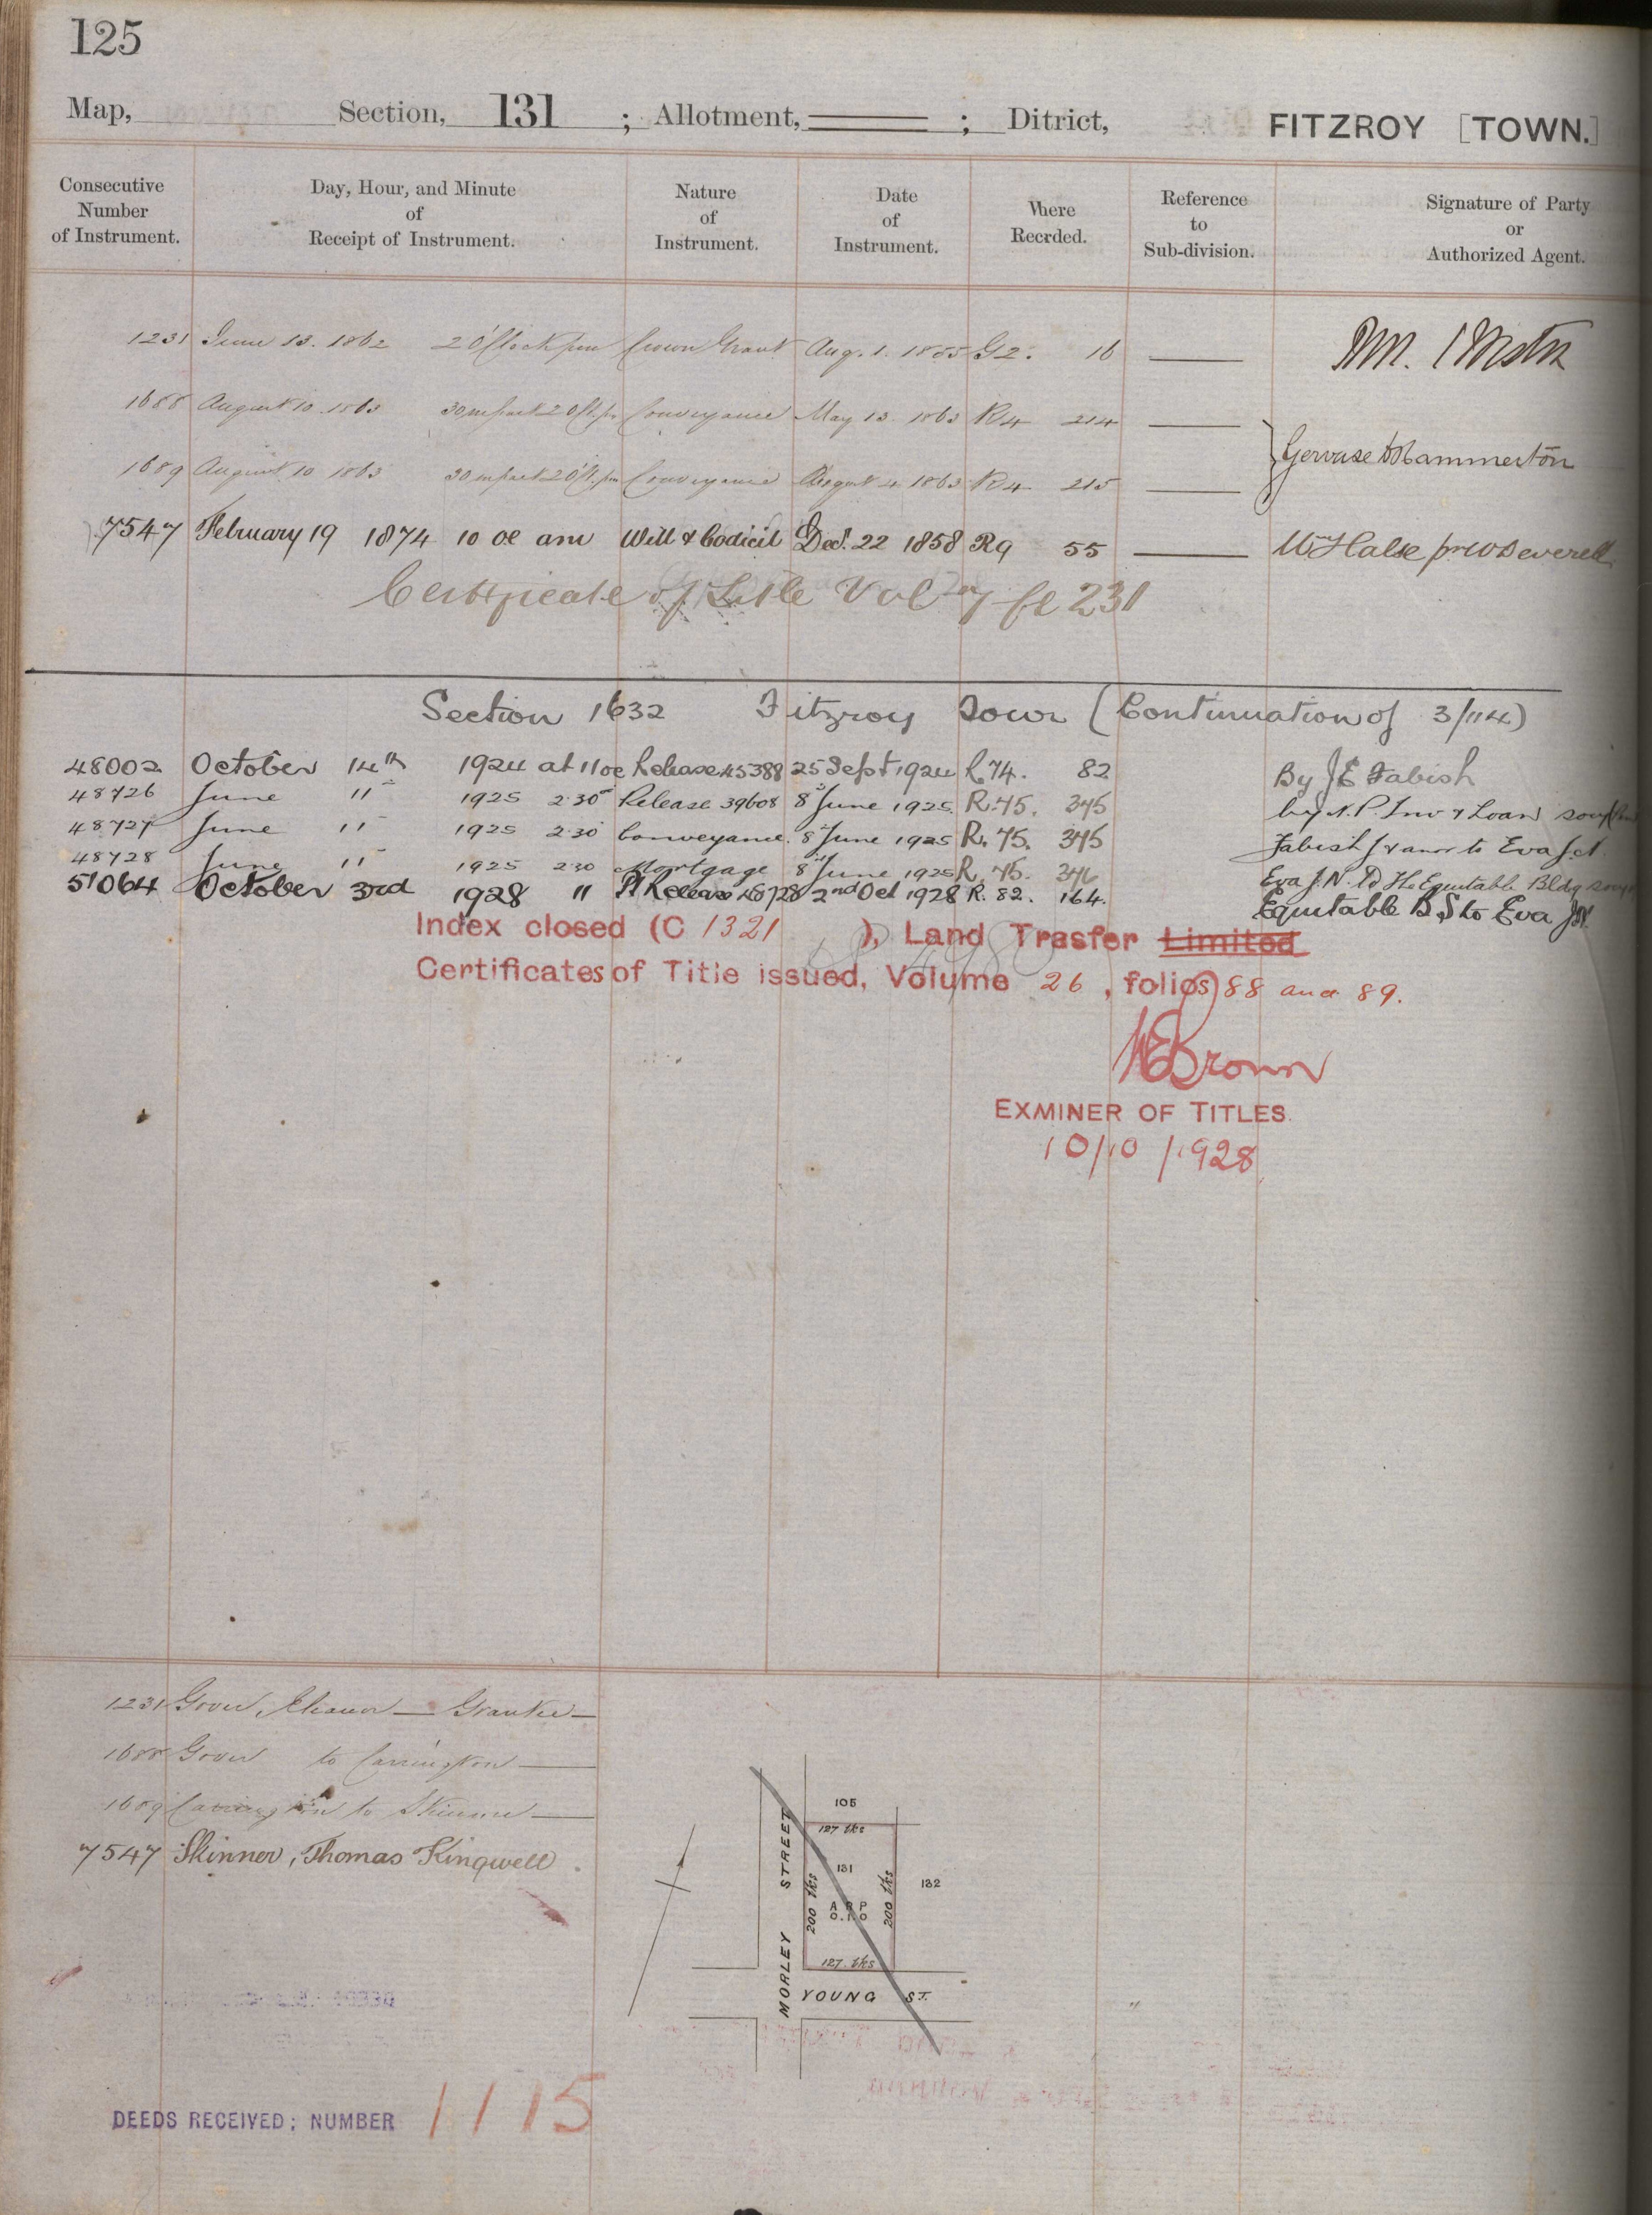 125
Map, Section, 131 ; Allotment, ; Ditrict, FITZROY [TOWN.]
Consecutive Number of Instrument. Day, Hour, and Minute of Receipt of Instrument. Nature of Instrument. Date of Instrument. Vhere Recrded. Reference to Sub-division. Signature of Party or Authorized Agent.
1231 June 13. 1862 2 O'Clock pm Crown Grant Aug. 1. 1855 G2. 16
1688 August 10. 1863 30 m past 2 O'Cl. pm Conveyance May 13 1863 R4 214
1689 August 10 1863 30 m past 2 O'Cl. pm Conveyance August 4 1863 R4 215 Gervase D Hammerton
7547 February 19 1874 10 oc am Will & Codicil Decr. 22 1858 R9 55 Wm Halse pr W Deverell
Certificate of Title Vol 7 fo 231
Section 1632 Fitzroy Town (Continuation of 3/114)
48002 October 14th 1924 at 11 oc Release 45388 25 Sept 1924 R 74. 82 By J E Fabish
48726 June 11 1925 2.30 Release 39608 8 June 1925 R. 75. 345 by N. P. Inv & Loan Socy
48727 June 11 1925 2.30 Conveyance 8 June 1925 R. 75. 345 Fabish J & anor to Eva J.N.
48728 June 11 1925 2.30 Mortgage 8 June 1925 R. 75. 346 Eva J. N. to The Equitable Bldg Socy
51064 October 3rd 1928 11 Release 48728 2nd Oct 1928 R. 82. 164. Equitable B S to Eva JN
Index closed (C 1321 ), Land Trasfer Limited
Certificates of Title issued, Volume 26, folios) 88 and 89.
Brown
EXMINER OF TITLES.
10/10/1928
1231 Gover, Eleanor — Grantee —
1688 Gover to Carrington —
1689 Carrington to Skinner —
7547 Skinner, Thomas Kingwell.
105
127 lks
MORLEY STREET
200 lks
131
A R P
0.1.0
200 lks
132
127 lks
YOUNG ST.
DEEDS RECEIVED; NUMBER 1115